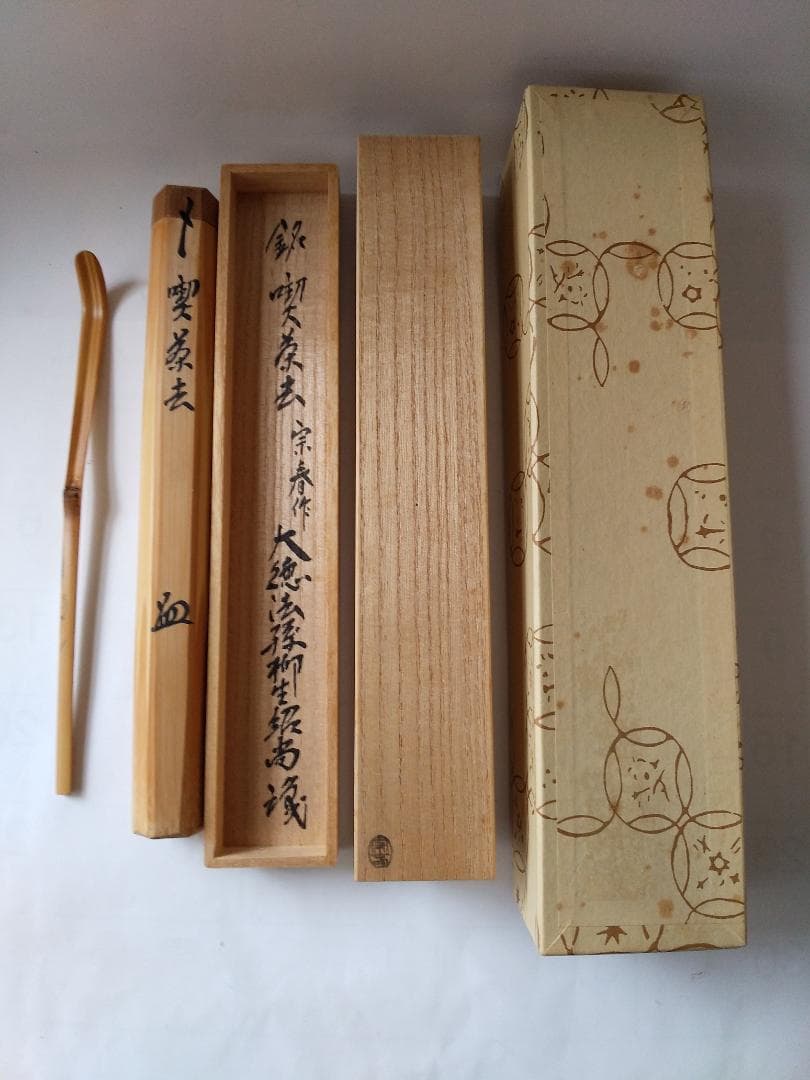 〆
喫茶去
銘 喫茶去 宗春作
大徳法孫柳生紹尚識